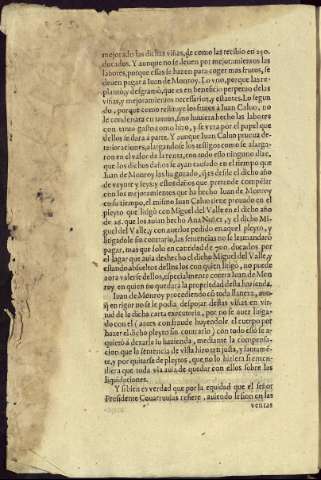 mejorado las dichas viñas, de como las recibio en 250.
ducados. Y aunque no se deuen por mejoramientos las
labores, porque essas se hazen para coger mas frutos, se
deuen pagar a Iuan de Monroy. Lo vno, porque las re-
planto, y desgramò, que es en beneficio perpetuo de las
viñas, y mejoramientos necessarios, y estantes. Lo segun
do, porque como restituye los frutos a Iuan Caluo, no
le condenara en tantos, sino huuiera hecho las labores
con tanto gasto como hizo, y se vera por el papel que
dellos se dara a parte. Y aunque Iuan Caluo prueua de-
terioraciones, alargandose los testigos como se alarga-
ron en el valor de la renta, con todo esso ninguno dize,
que los dichos daños se ayan causado en el tiempo que
Iuan de Monroy las ha gozado, desde el dicho año
de veynte y seys; y estos daños que pretende compēsar
con los mejoramientos que ha hecho Iuan de Monroy
en su tiempo, el mismo Iuan Caluo tiene prouado en el
pleyto que litigò con Miguel del Valle en el dicho año
de 26. que los auian hecho Ana Nuñez, y el dicho Mi-
guel del Valle, y con auerlos pedido en aquel pleyto, y
litigadole sin contrario, las sentencias no se le mandarō
pagar, mas que solo en cantidad de 750. ducados, por
el lagar que auia deshecho el dicho Miguel del Valle, y
estando absueltos dellos los con quien litigò, no puede
aora valerse dellos, especialmente contra Iuan de Mon
roy, en quien no quedara la propriedad desta hazienda.
Iuan de Monroy procediendo cō toda llaneza, aunq̄
en rigor no se le podia despojar destas viñas en vir-
tud de la dicha carta executoria, por no se auer litiga-
do con el (antes con fraude huyendole el cuerpo por
hazer el dicho pleyto sin contrario) con todo esso se a-
quietò a dexarle su hazienda, mediante la compensa-
cion que la sentencia de vista hizo tan justa, y santamē-
te, y por quitarse de pleytos, que no lo hiziera si enten-
diera que toda via auia de quedar con ellos sobre las
liquidaciones.
Y si bien es verdad que por la equidad que el señor
Presidente Couarruuias refiere, auiendo lesion en las
ventas